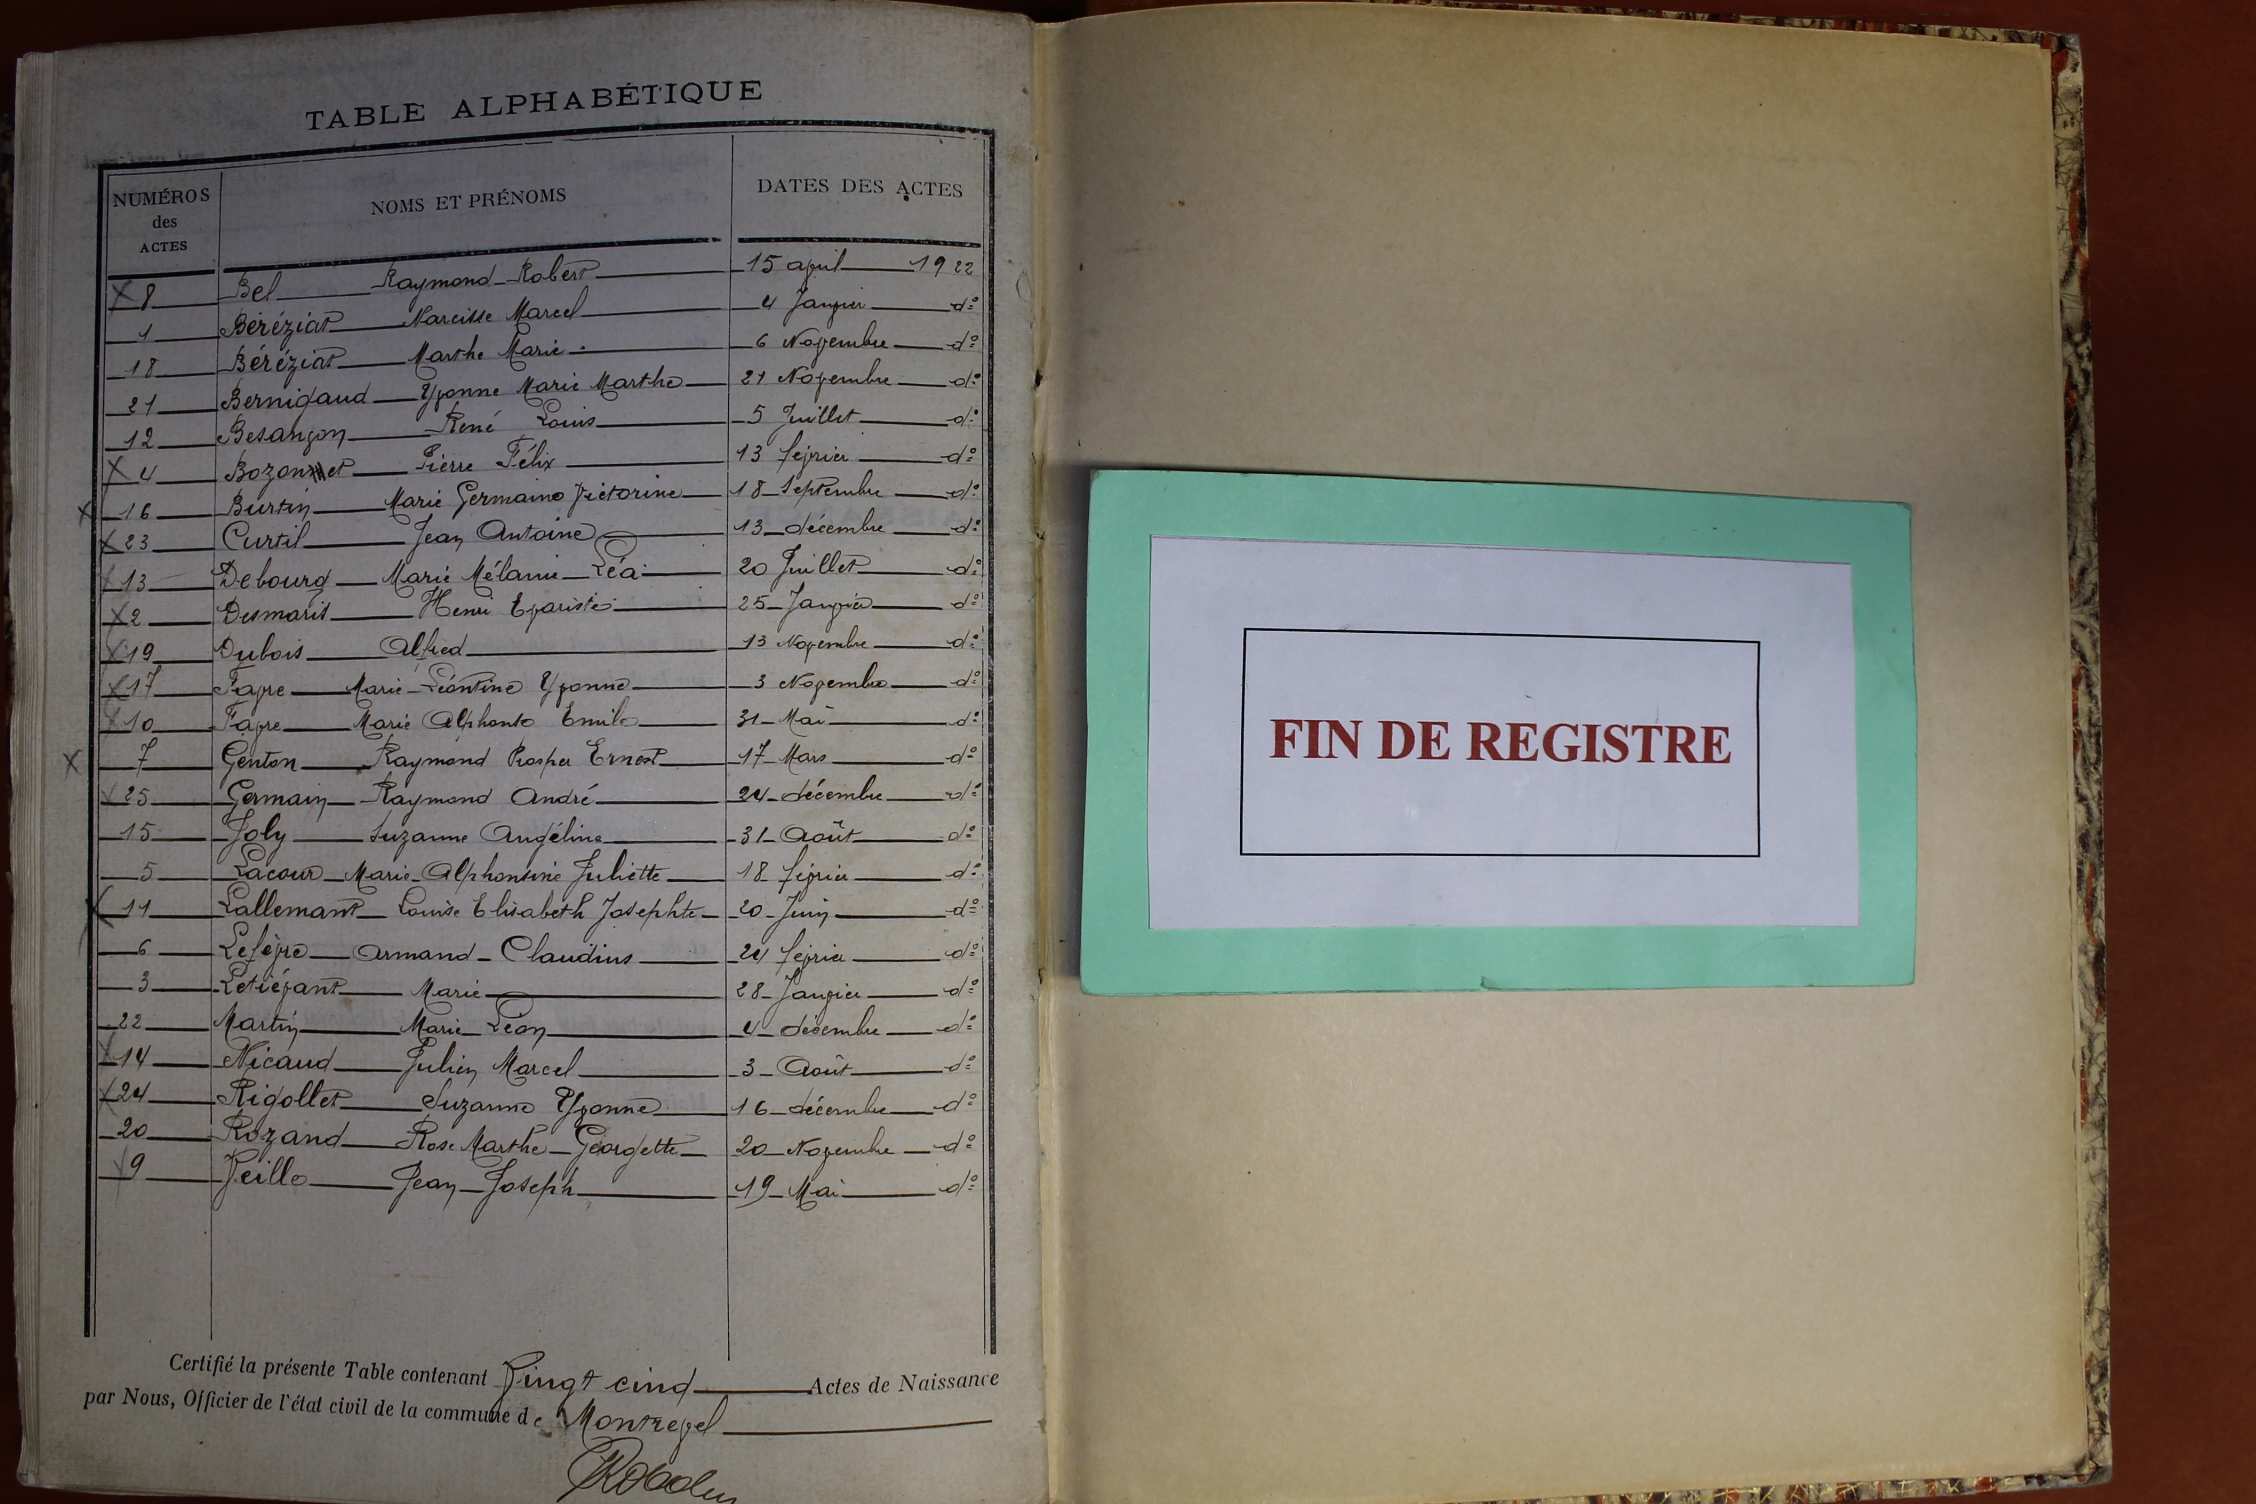 TABLE ALPHABÉTIQUE
NUMÉROS des ACTES NOMS ET PRÉNOMS DATES DES ACTES
8 Bel Raymond Robert 15 avril 1922
1 Béréziat Narcisse Marcel 4 Janvier do
18 Béréziat Marthe Marie 6 Novembre do
21 Bernigaud Yvonne Marie Marthe 21 Novembre do
12 Besançon René Louis 5 Juillet do
4 Bozonnet Pierre Félix 13 février do
16 Burtin Marie Germaine Victorine 18 Septembre do
23 Curtil Jean Antoine 13 décembre do
13 Debourg Marie Mélanie Léa 20 Juillet do
2 Desmaris Henri Evariste 25 Janvier do
19 Dubois Alfred 13 Novembre do
17 Favre Marie Léontine Yvonne 3 Novembre do
10 Favre Marie Alphonse Emile 31 Mai do
7 Genton Raymond Prosper Ernest 17 Mars do
25 Germain Raymond André 24 décembre do
15 Joly Suzanne Angéline 31 Août do
5 Lacour Marie Alphonsine Juliette 18 février do
11 Lallemant Louise Elisabeth Josephte 20 Juin do
6 Lefèvre Armand Claudius 24 février do
3 Letiévant Marie 28 Janvier do
22 Martin Marie Léon 4 décembre do
14 Nicaud Julien Marcel 3 Août do
24 Rigollet Suzanne Yvonne 16 décembre do
20 Rozand Rose Marthe Georgette 20 Novembre do
9 Veille Jean Joseph 19 Mai do
Certifié la présente Table contenant Vingt cinq Actes de Naissance
par Nous, Officier de l'état civil de la commune de Montrevel
FIN DE REGISTRE